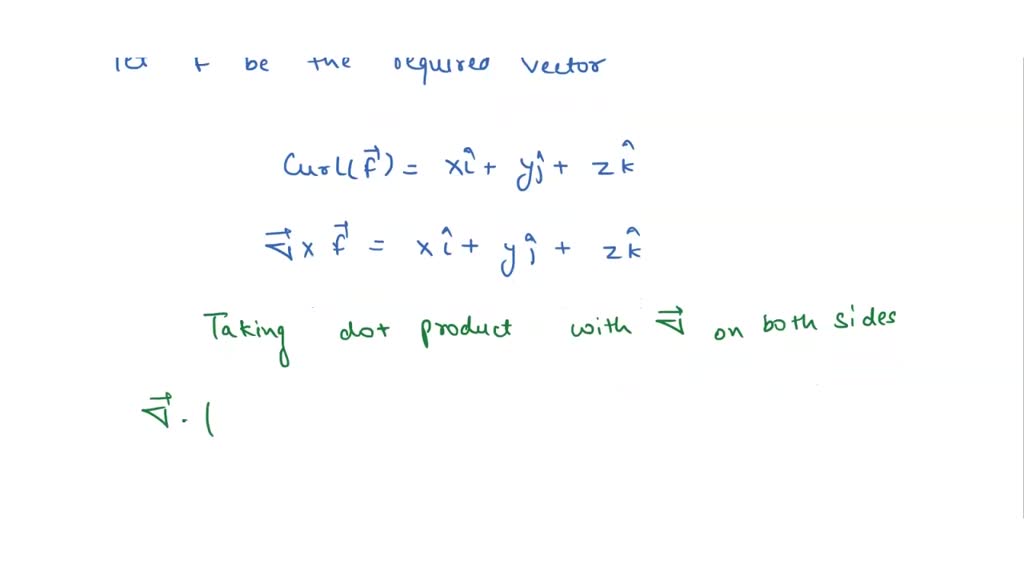 let f be the required vector
Curl(f⃗) = xî + yĵ + zk̂
∇⃗ × f⃗ = xî + yĵ + zk̂
Taking dot product with ∇⃗ on both sides
∇⃗ . (